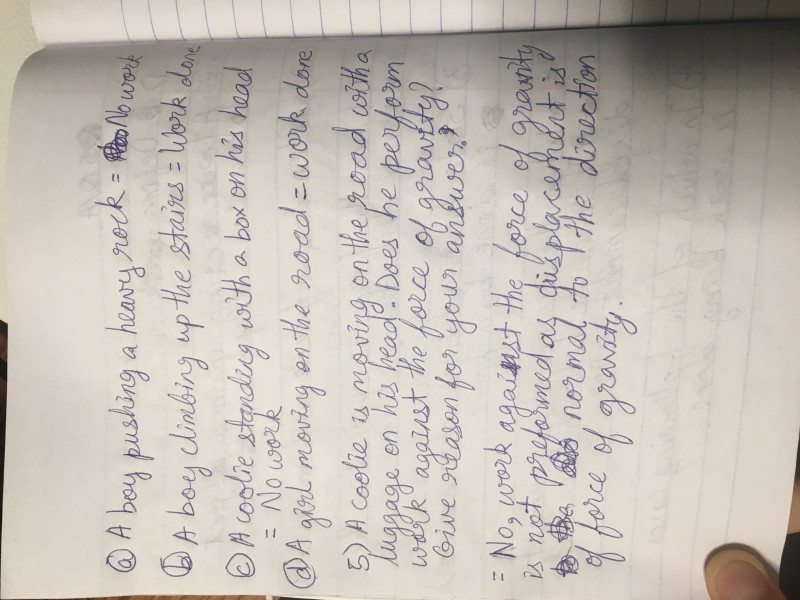 ⓐ A boy pushing a heavy rock = No work
ⓑ A boy climbing up the stairs = Work done
ⓒ A coolie standing with a box on his head
= No work
ⓓ A girl moving on the road = work done
5) A coolie is moving on the road with a
luggage on his head. Does he perform
work against the force of gravity?
Give reason for your answer.?
= No, work against the force of gravity
is not preformed as displacement is
normal to the direction
of force of gravity.